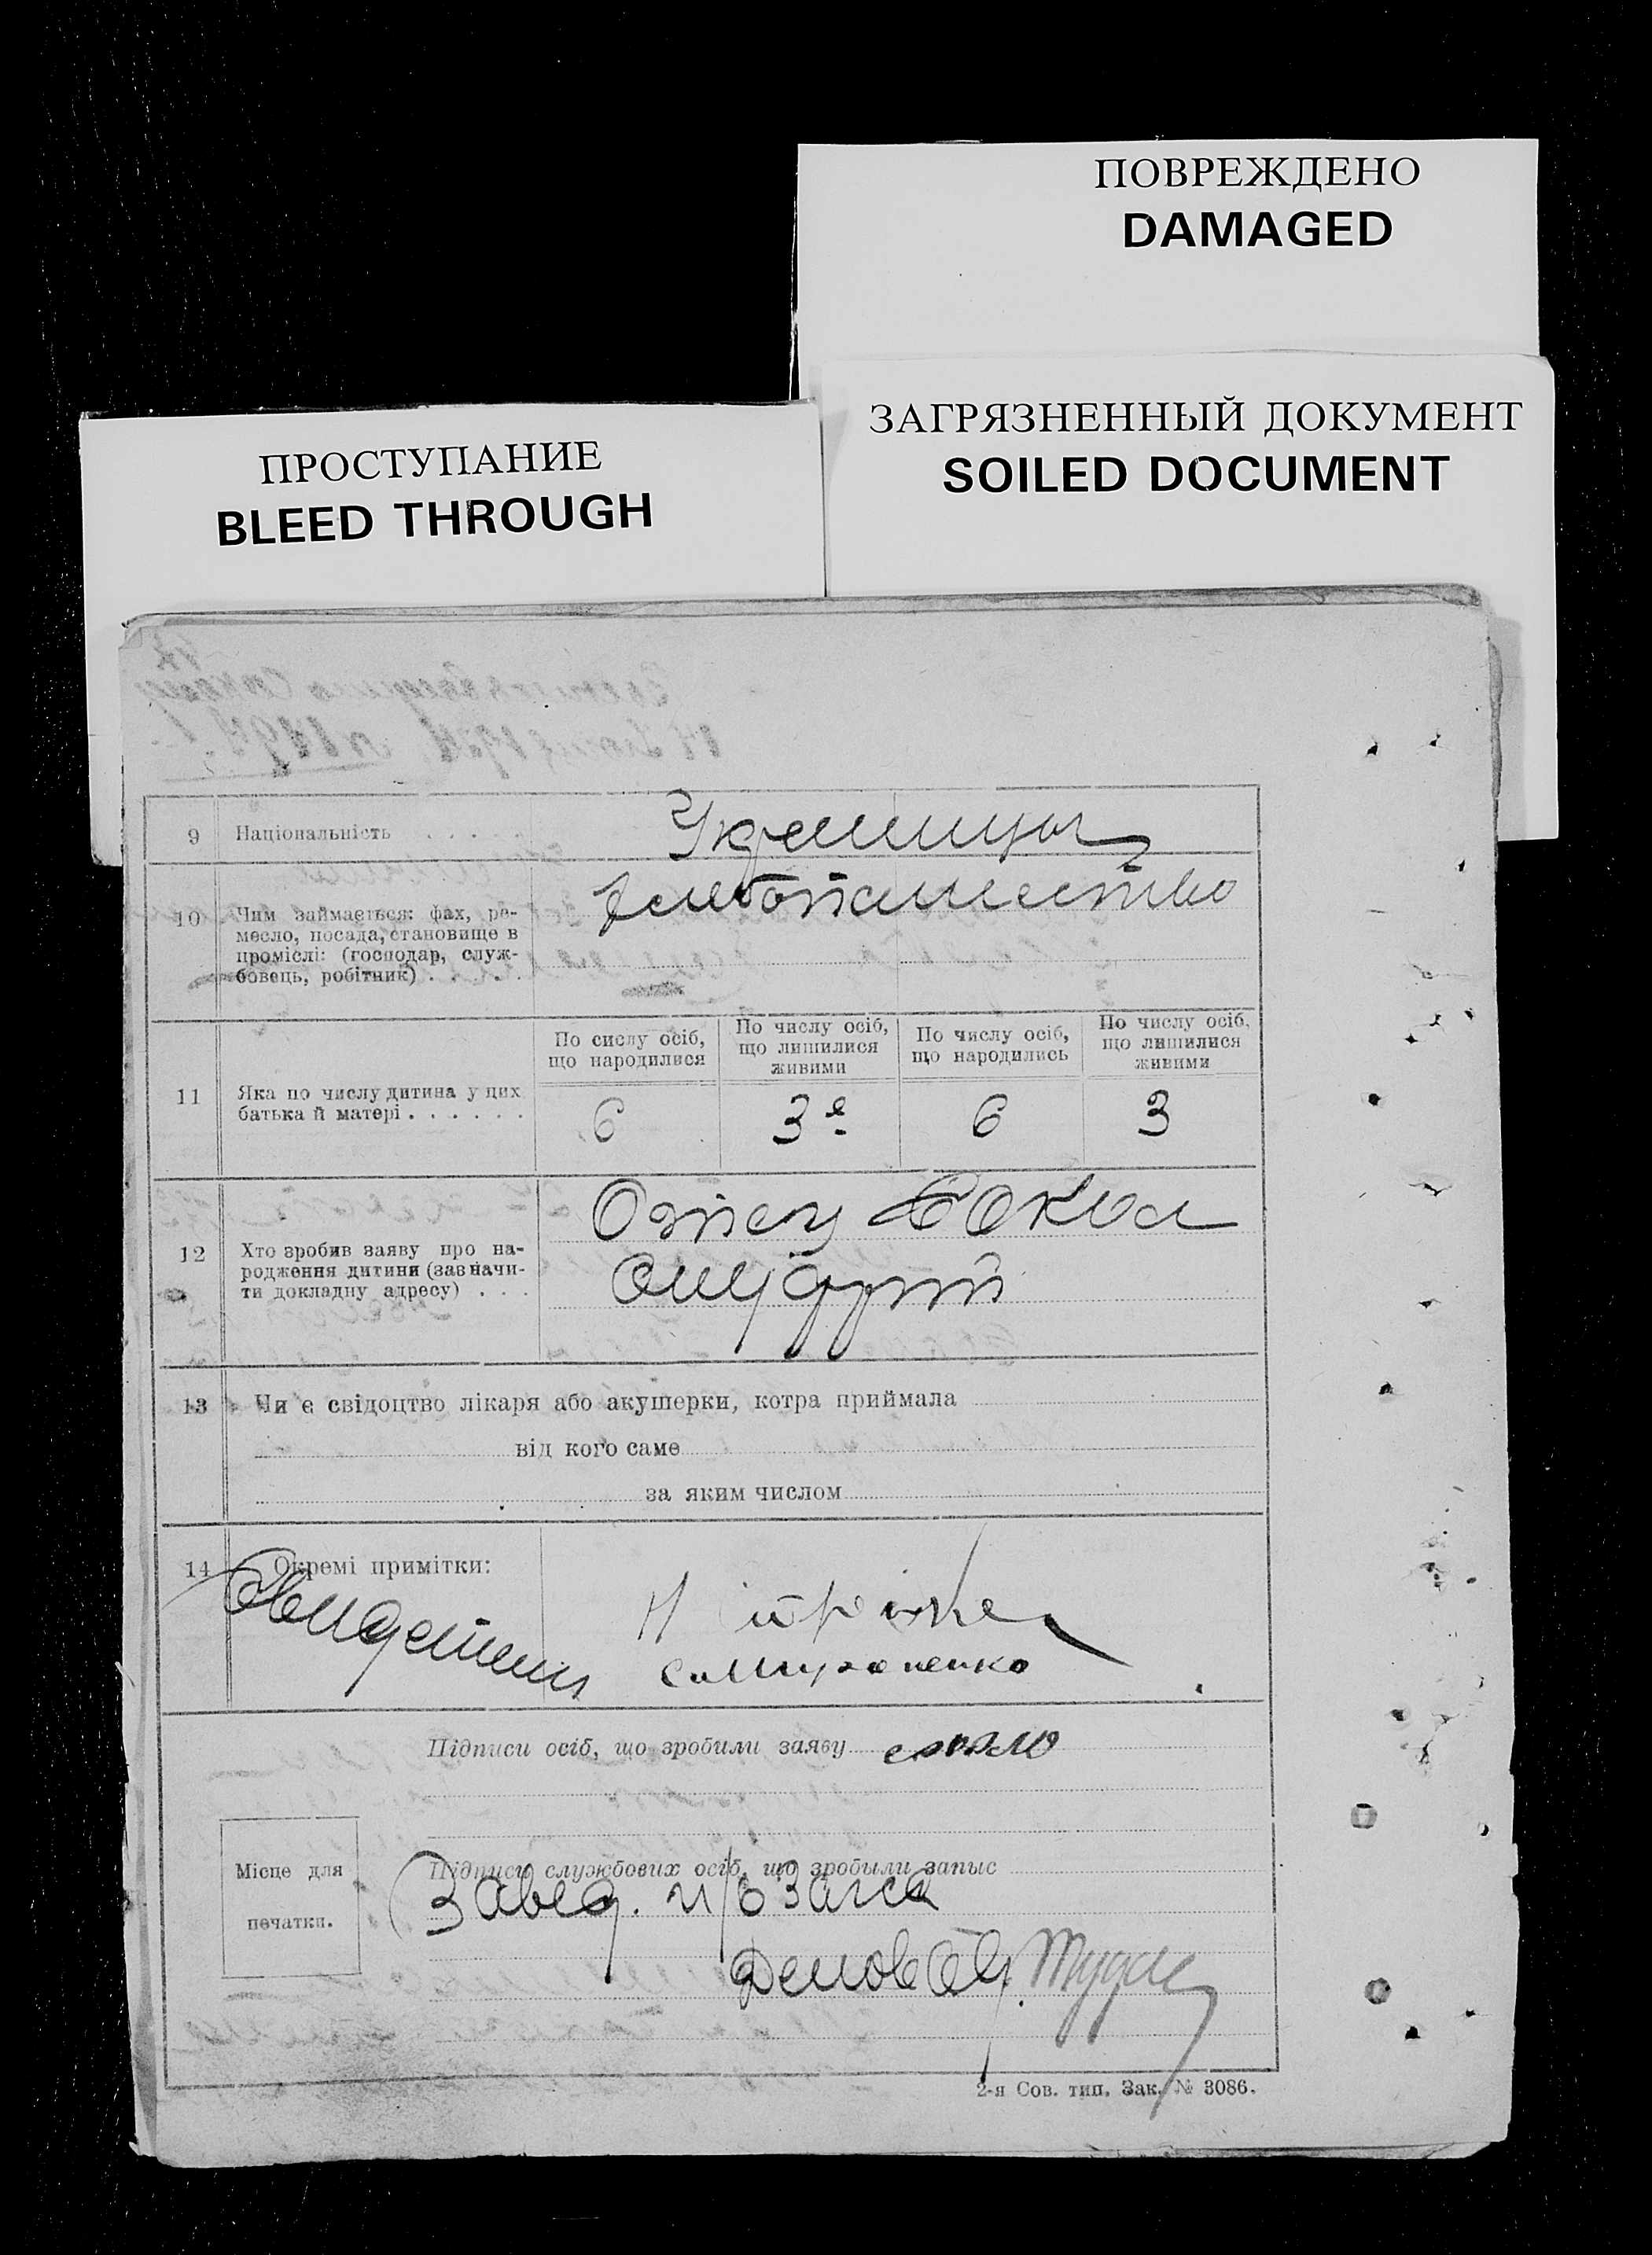 ПОВРЕЖДЕНО
DAMAGED
ЗАГРЯЗНЕННЫЙ ДОКУМЕНТ
SOILED DOCUMENT
ПРОСТУПАНИЕ
BLEED THROUGH
9 Національність . . . . .
Украинцы
10 Чим займається: фах, ре-
месло, посада, становище в
промислі: (господар, служ-
бовець, робітник) . . . . .
хлебопашество
11 Яка по числу дитина у цих
батька й матері . . . . . .
По сислу осіб,
що народилися
По числу осіб,
що лишилися
живими
По числу осіб,
що народились
По числу осіб,
що лишилися
живими
6 3е 6 3
12 Хто зробив заяву про на-
родження дитини (зазначи-
ти докладну адресу) . . .
Отец Сокол
13 Чи є свідоцтво лікаря або акушерки, котра приймала
від кого саме
за яким числом
14 Окремі примітки:
Свидетели
Підписи осіб, що зробили заяву
Підписи службових осіб, що зробыли запыс
Завед. п/о Загса
Деловод.
Місце для
печатки.
2-я Сов. тип. Зак. № 3086.